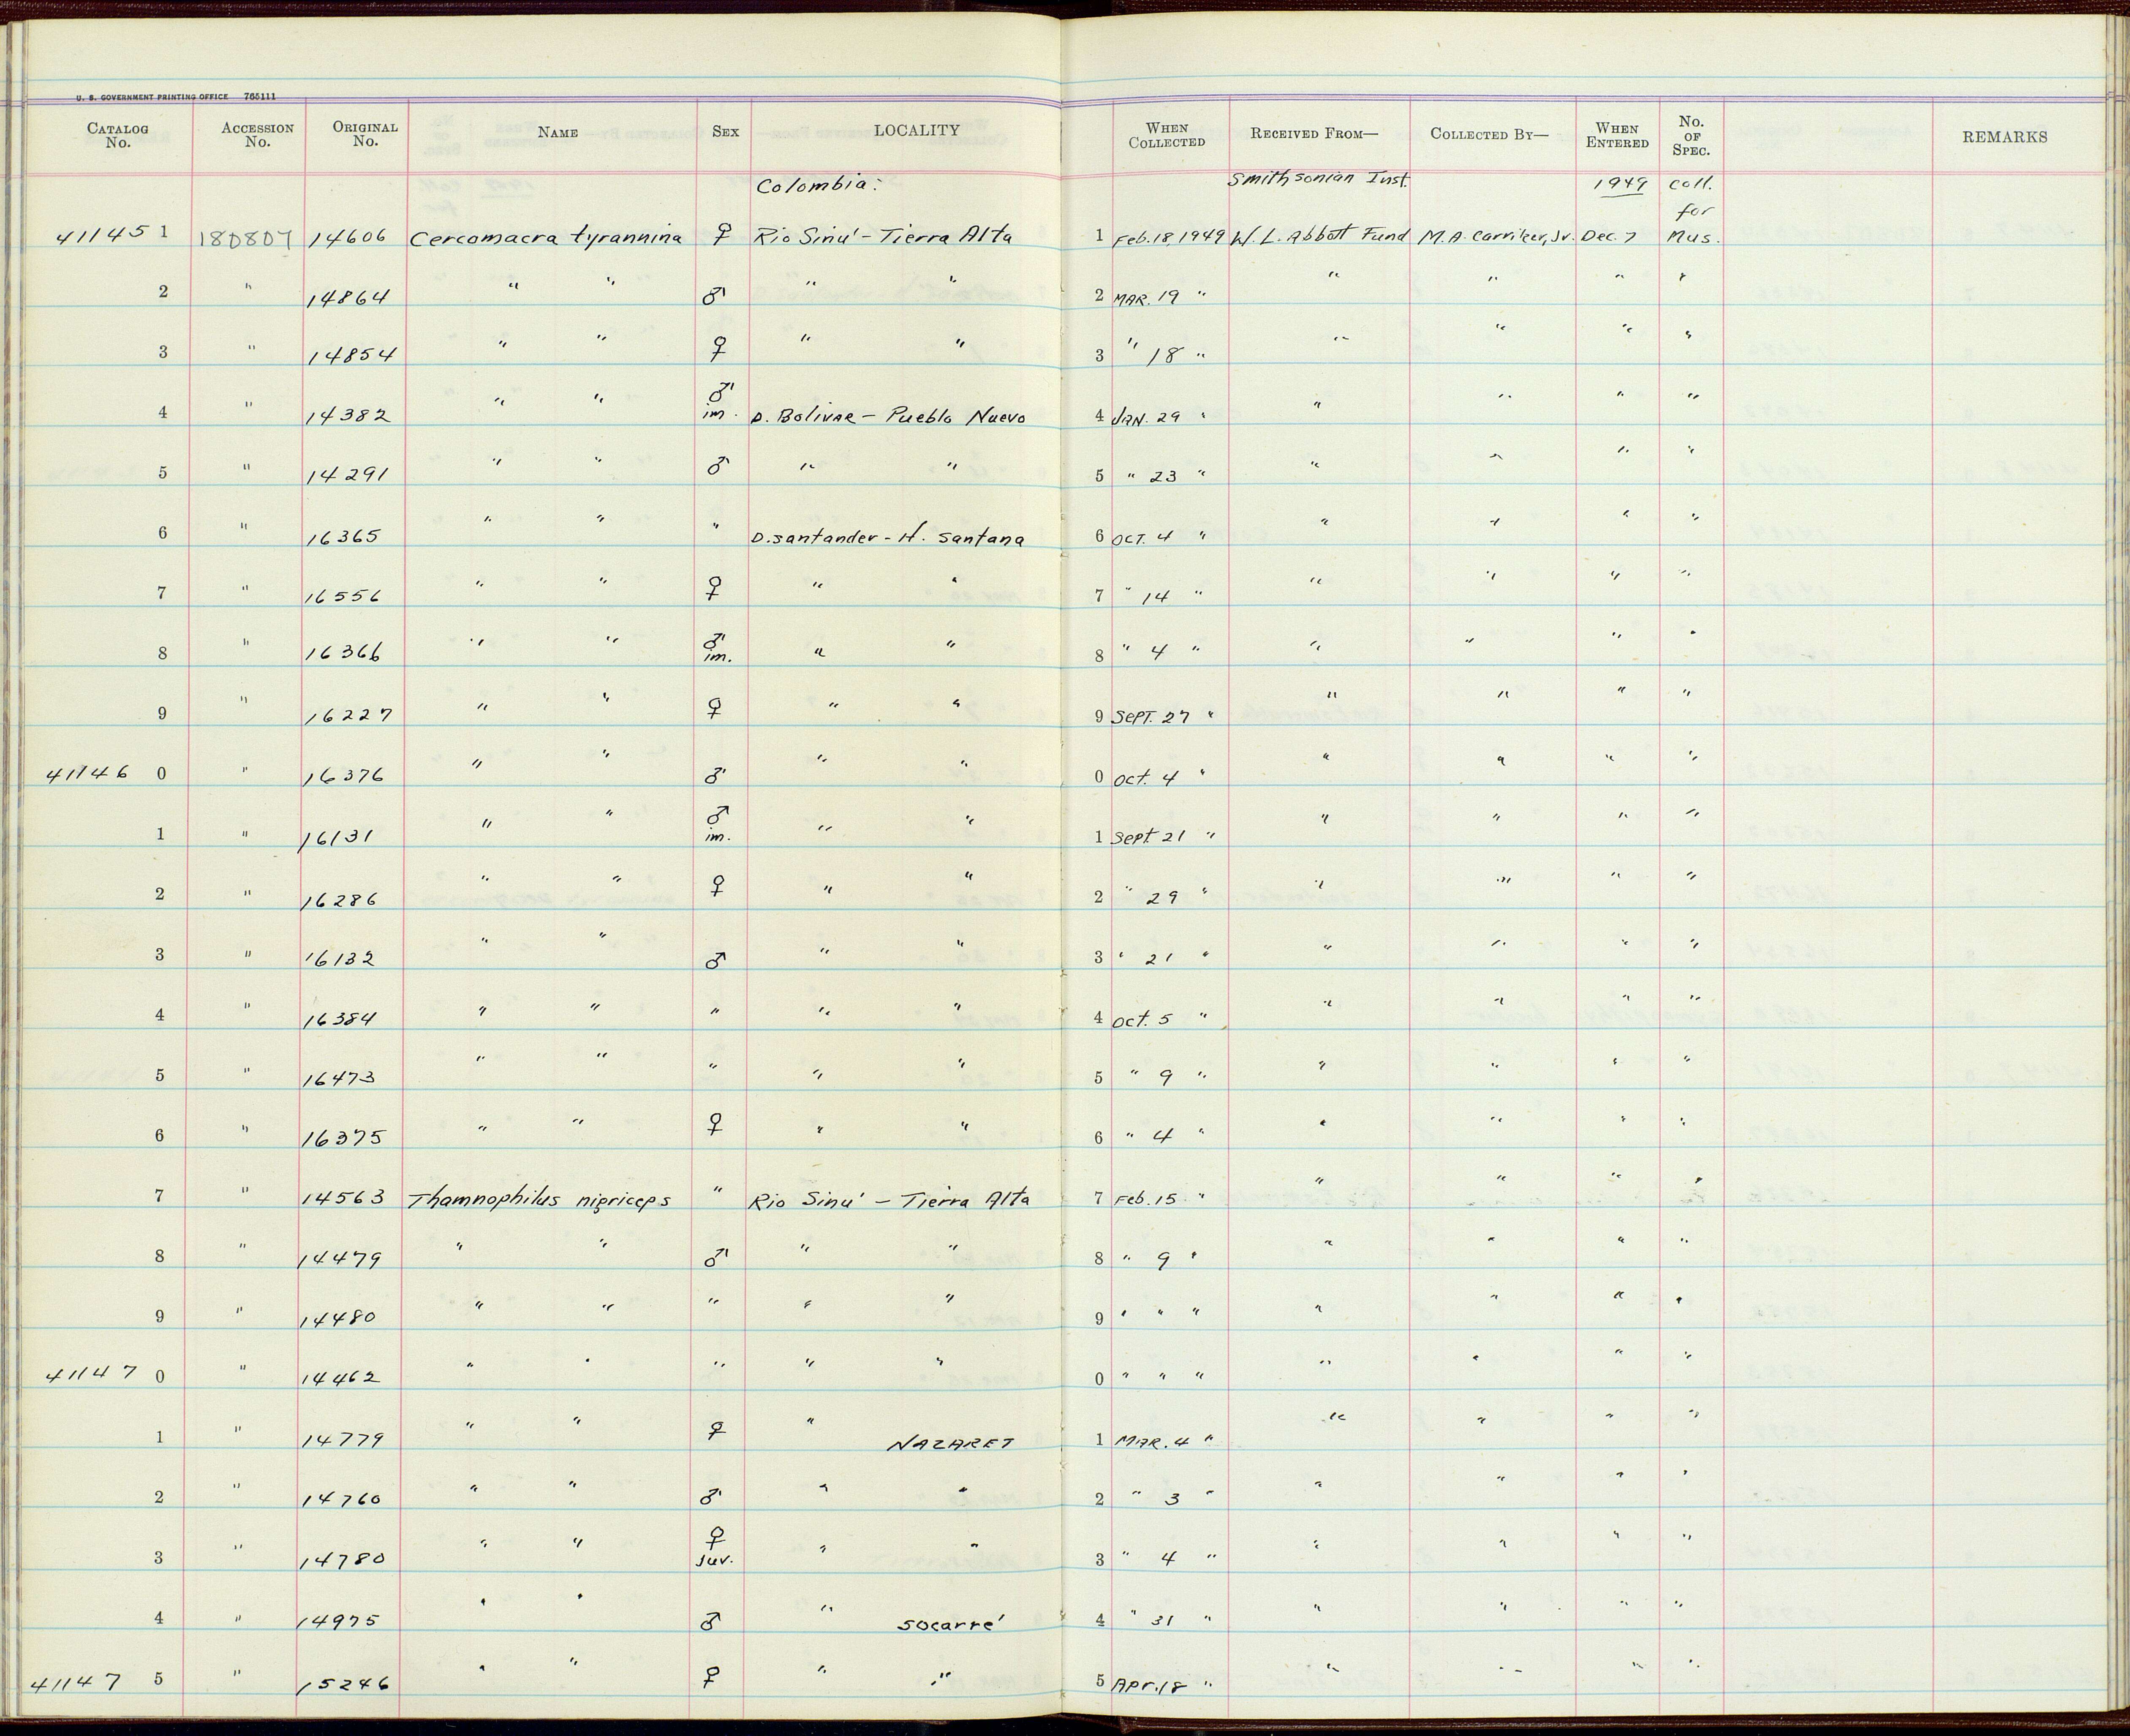 U. S. GOVERNMENT PRINTING OFFICE 765111
CATALOG No. ACCESSION No. ORIGINAL No. NAME SEX LOCALITY WHEN COLLECTED RECEIVED FROM— COLLECTED BY— WHEN ENTERED No. OF SPEC. REMARKS
Colombia: Smithsonian Inst. 1949 coll. for
41145 1 180807 14606 Cercomacra tyrannina ♀ Rio Sinú - Tierra Alta 1 Feb. 18, 1949 W. L. Abbott Fund M. A. Carriker, Jr. Dec. 7 Mus.
2 " 14864 " " ♂ " " 2 MAR. 19 " " " " "
3 " 14854 " " ♀ " " 3 " 18 " " " " "
4 " 14382 " " ♂ im. D. Bolivar - Pueblo Nuevo 4 JAN. 29 " " " " "
5 " 14291 " " ♂ " " 5 " 23 " " " " "
6 " 16365 " " " D. santander - H. santana 6 OCT. 4 " " " " "
7 " 16556 " " ♀ " " 7 " 14 " " " " "
8 " 16366 " " ♂ im. " " 8 " 4 " " " " "
9 " 16227 " " ♀ " " 9 SEPT. 27 " " " " "
41146 0 " 16376 " " ♂ " " 0 Oct. 4 " " " " "
1 " 16131 " " ♂ im. " " 1 Sept 21 " " " " "
2 " 16286 " " ♀ " " 2 " 29 " " " " "
3 " 16132 " " ♂ " " 3 " 21 " " " " "
4 " 16384 " " " " " 4 Oct. 5 " " " " "
5 " 16473 " " " " " 5 " 9 " " " " "
6 " 16375 " " ♀ " " 6 " 4 " " " " "
7 " 14563 Thamnophilus nigriceps " Rio Sinú - Tierra Alta 7 Feb. 15 " " " " "
8 " 14479 " " ♂ " " 8 " 9 " " " " "
9 " 14480 " " " " " 9 " " " " " " "
41147 0 " 14462 " " " " " 0 " " " " " " "
1 " 14779 " " ♀ " NAZARET 1 MAR. 4 " " " " "
2 " 14760 " " ♂ " " 2 " 3 " " " " "
3 " 14780 " " ♀ Juv. " " 3 " 4 " " " " "
4 " 14975 " " ♂ " socarré 4 " 31 " " " " "
41147 5 " 15246 " " ♀ " " 5 Apr. 18 " " " " "